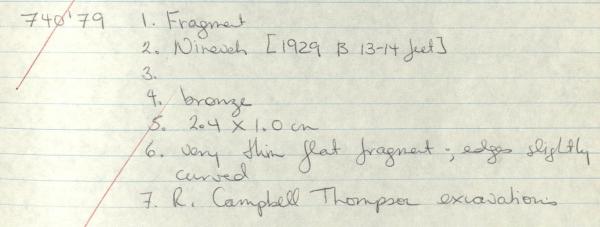 740'79 1. Fragment
2. Nineveh [1929 B 13-14 feet]
3.
4. bronze
5. 2.4 x 1.0 cm
6. very thin flat fragment; edges slightly
curved
7. R. Campbell Thompson excavations